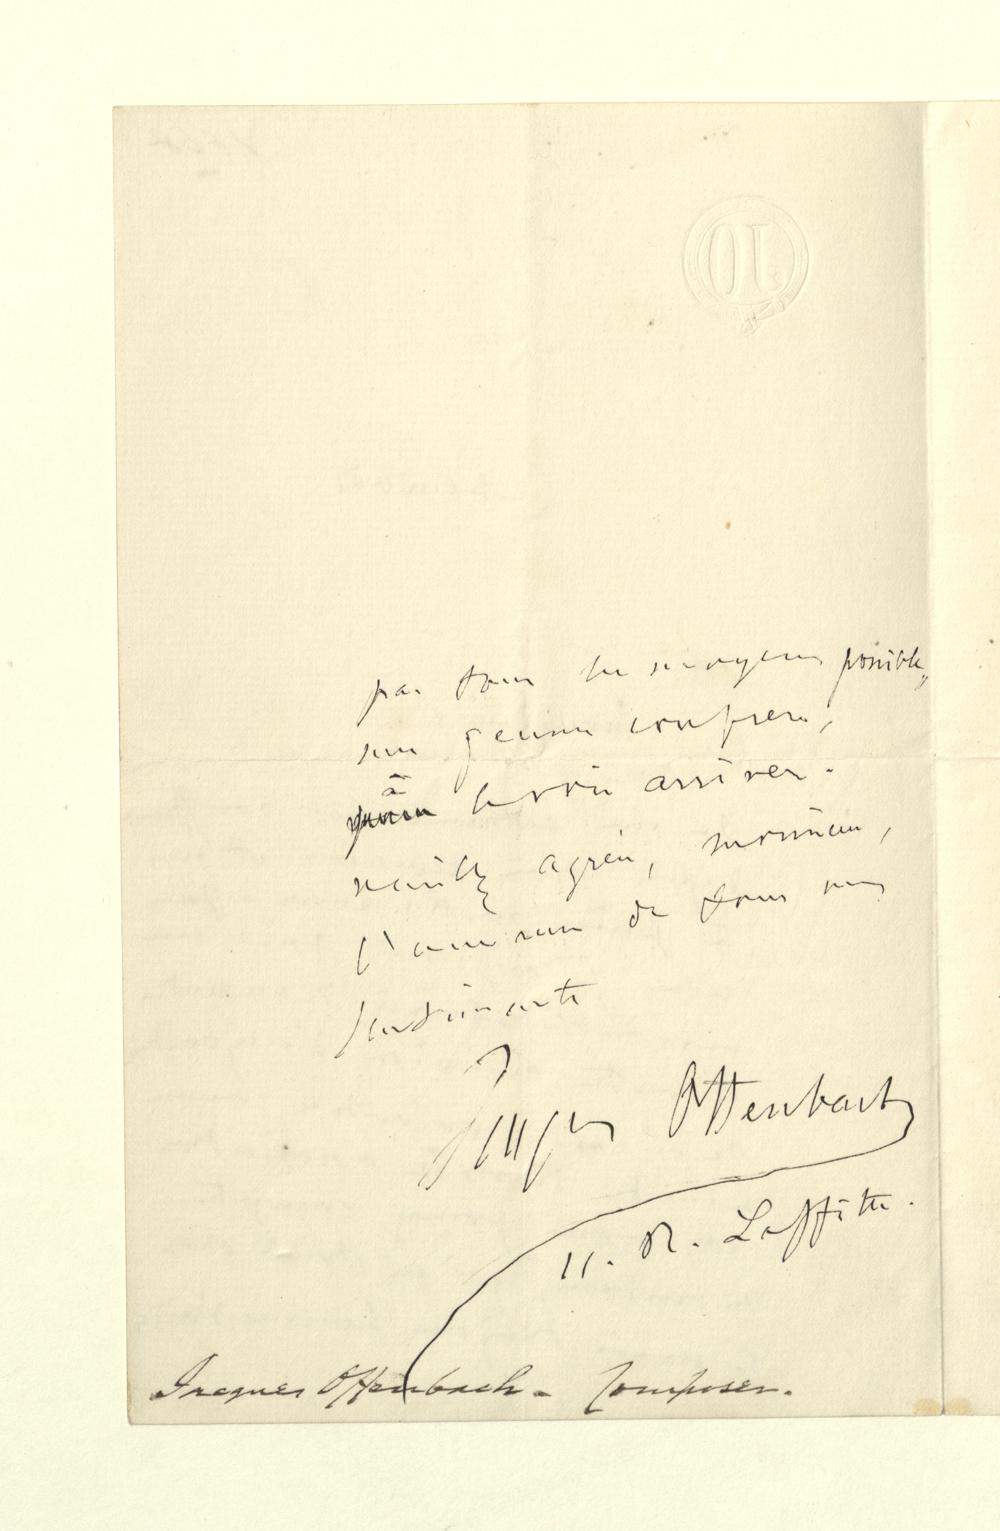 par tous les moyens possibles,
un jeune confrère,
à le voir arriver.
veuillez agréer, monsieur,
l'assurance de tous mes
sentiments
Jacques Offenbach
11. R. Laffitte.
Jacques Offenbach - Composer.